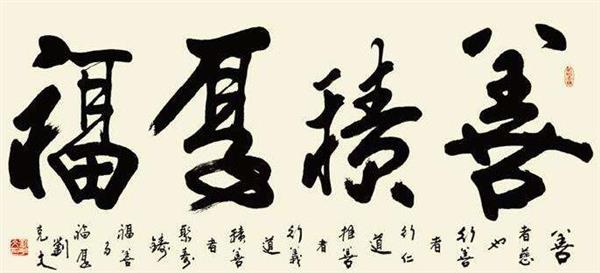 善積厚福
善
者慈
也
行善
者
行仁
道
推善
者
行義
道
積善
者
聚
鑄
福善
乃
福厚
劉
克文